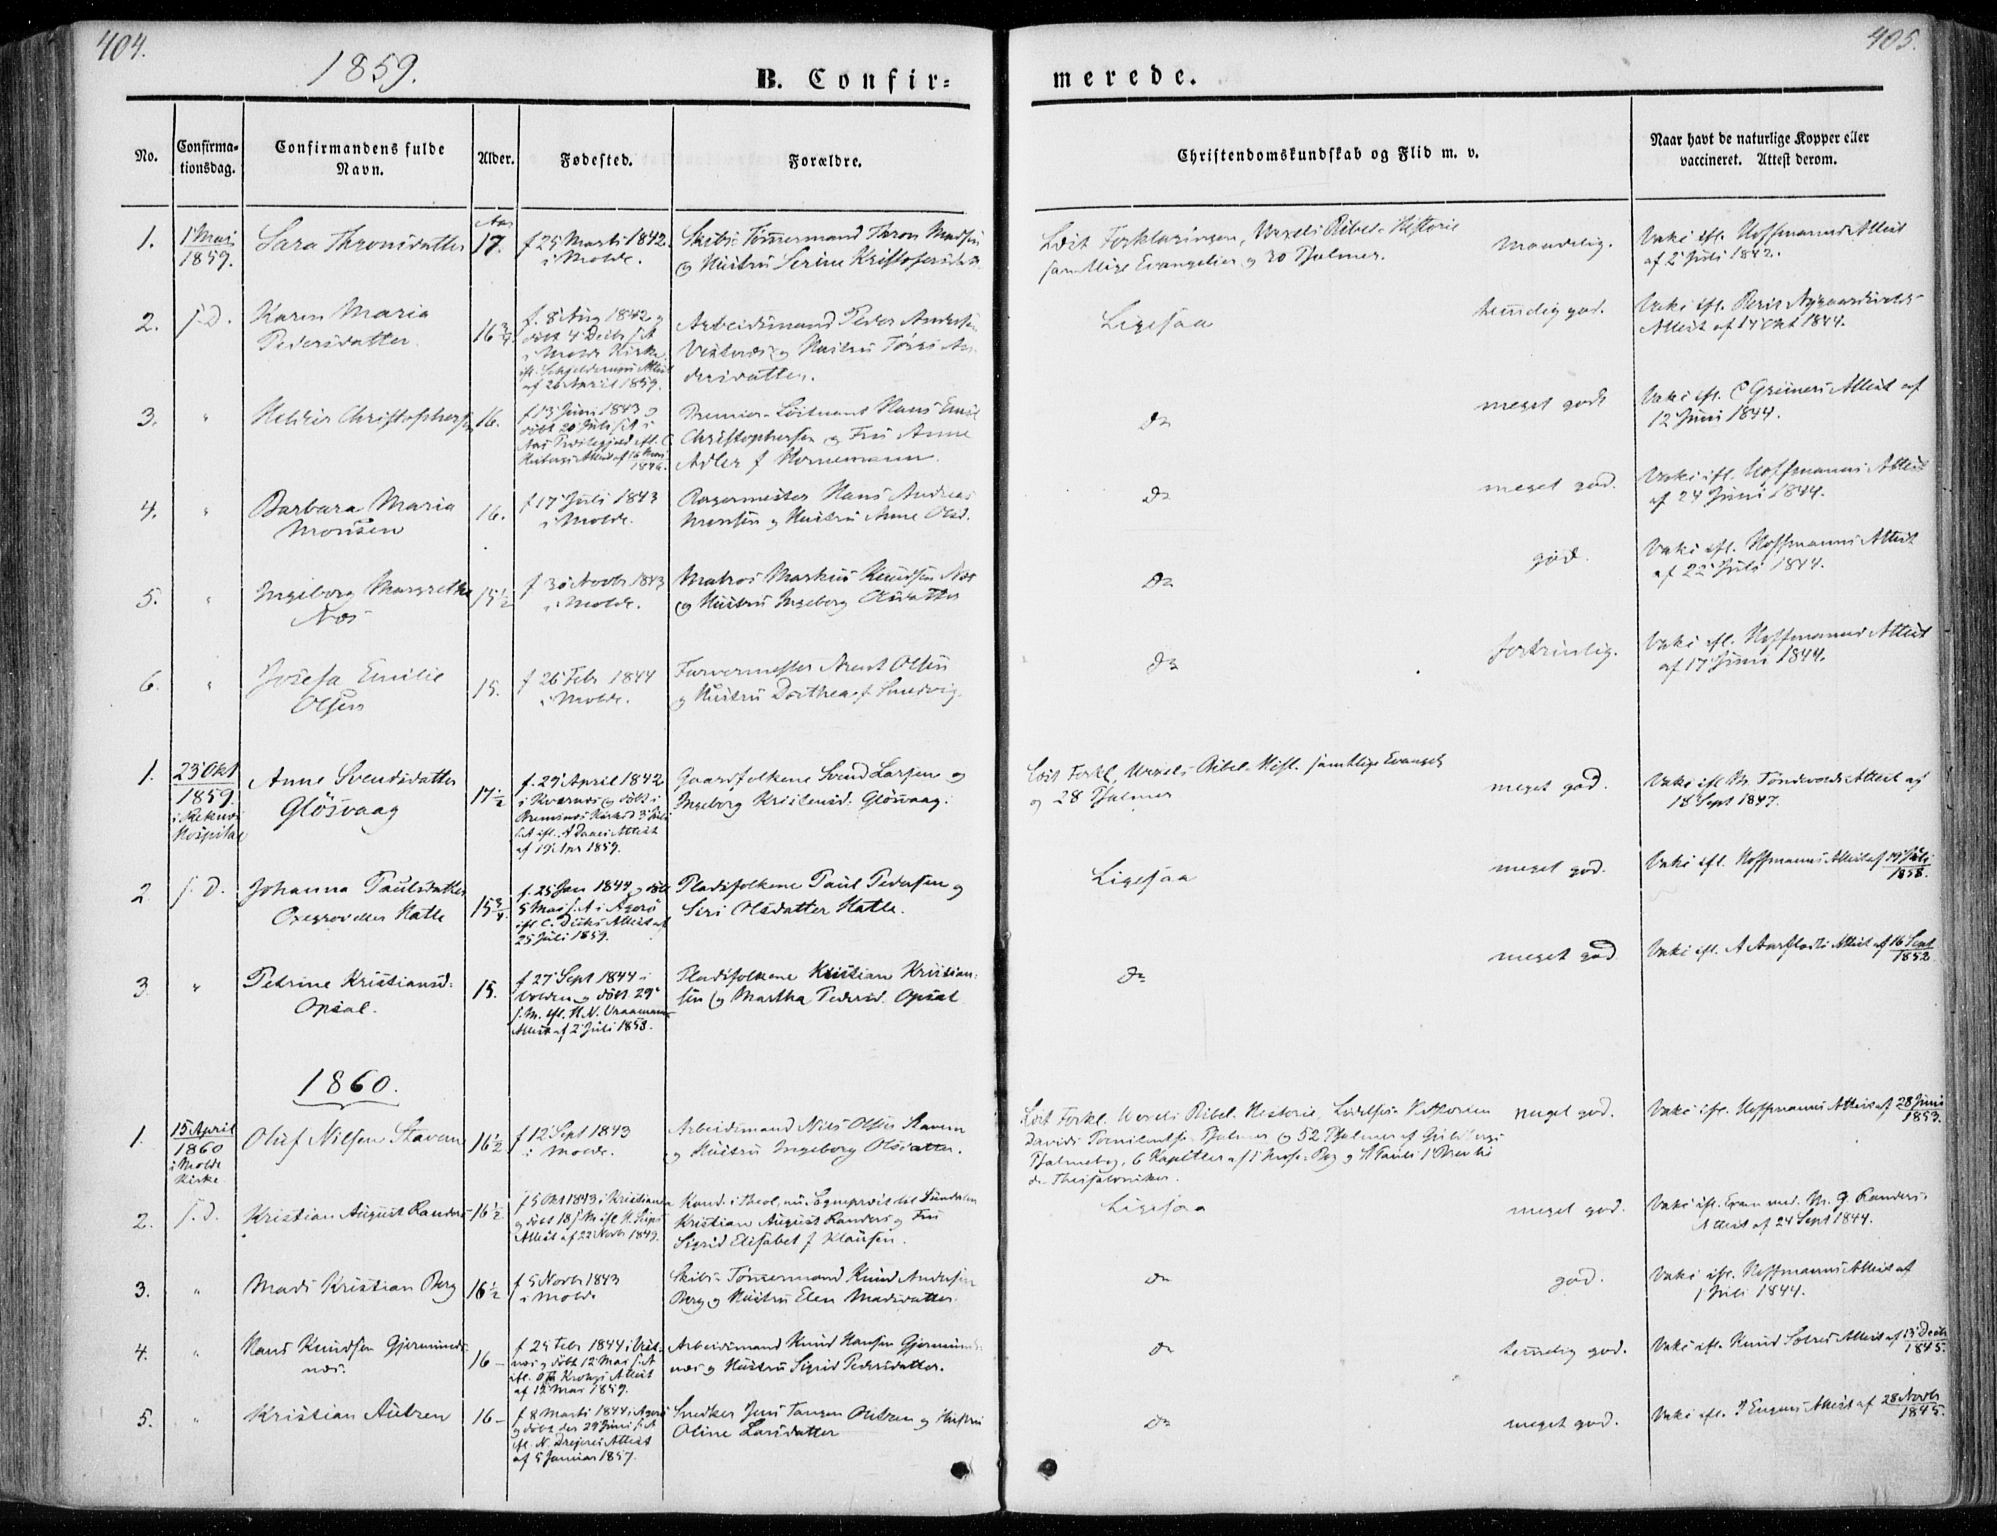 404.
405.
1859.
B. Confir=
merede.
No.
Confirma-
tionsdag.
Confirmandens fulde
Navn.
Alder.
Fødested.
Forældre.
Christendomskundskab og Flid m. v.
Naar havt de naturlige Kopper eller
vaccineret. Attest derom.
1.
1 Mai
1859.
Sara Thronsdatter
Aar
17.
f 25 Marts 1842.
i Molde.
Skibs-Tömmermand Thron Madsen
og Hustru Serine
Læst Forklaringen, Vexels Bibel-Historie
samtlige Evangelier og 30 Psalmer.
maadelig.
Vaks. efl. Hoffmanns Attest
af 2 Juli 1842.
2.
s. D.
Karen Maria
Pedersdatter
16 3/4
f. 8 Aug 1842 og
döbt 4 Decbr s. A
i Molde Kirke
efl. Attest
af 26 April 1859.
Arbeidsmand Peder Andersen
og Hustru
dersdatter.
Ligesaa
temelig god.
Vaks efl.
Attest af 14 Okt 1844.
3.
"
Christophersen
16.
f 13 Juni 1843 og
döbt 20 Juli s. A i
Attest af 16 Mai
1846.
Premier-Løitnant Hans Emil
Christophersen og Fru Anne
Adler f Hornemann.
do
meget godt
Vaks. efl. C Grüners Attest af
12 Juni 1844.
4.
"
Barbara Maria
Monsen
16.
f 17 Juli 1843
i Molde.
Hans Andreas
Monsen og Hustru Anne Olsd.
do
meget god.
Vaks efl. Hoffmanns Attest
af 24 Juni 1844.
5.
"
Ingeborg Margrethe
Næs
15 1/2
f 30 Novbr 1843
i Molde.
Matros Markus Knudsen Næs
og Hustru Ingeborg Olsdatter
do
god.
Vaks efl. Hoffmanns Attest
af 22 Juli 1844.
6.
"
Josefa Emilie
Olsen
15.
f 26 Febr 1844
i Molde.
Farvermester Arent Olsen
og Hustru Dorthea f Smedvig.
do
fortrinlig.
Vaks efl. Hoffmanns Attest
af 17 Juni 1844.
1.
23 Okt
1859.
i Reknes
Hospital
Anne Svendsdatter
Glösvaag
17 1/2
f. 29 April 1842
i Kvernes og döbt i
Bremsnes Kirke d 3 Juli
s. A efl. A Attest
af 19 Apr 1859.
Gaardfolkene Svend Larsen og
Ingeborg Kristensd. Glösvaag.
Læst Forkl., Vexels Bibel-Hist. samtlige Evangel.
og 28 Psalmer
meget god.
Vaks efl M. Attest af
18 Sept 1847.
2
s. D.
Johanna Paulsdatter
Hatle
15 3/4
f. 25 Jan 1844 og döbt
5 Mai s. A i Agerö
efl C. Attest af
25 Juli 1859.
Pladsfolkene Paul Pedersen og
Siri Olsdatter Hatle.
Ligesaa
meget god.
Vaks efl. Hoffmanns Attest af 19 Juli
1858.
3
"
Petrine Kristiansd:
Opsal.
15.
f 27 Sept 1844 i
Volden og döbt 29
s. M. efl. H. N.
Attest af 2 Juli 1858.
Pladsfolkene Kristian Kristian:
sen og Martha Pedersd. Opsal
do
meget god
Vaks efl. A Attest af 16 Sept
1852.
1860.
1.
15 April
1860
i Molde
Kirke
Oluf Nilsen Stavem
16 1/2
f 12 Sept 1843
i Molde.
Arbeidsmand Nils Olsen Stavem
og Hustru Ingeborg Olsdatter.
Læst Forkl. Vexels Bibel-Historie,
Davids Psalmer og 52 Psalmer af Guldbergs
Psalmebog, 6 Kapitler af 1 Mose-Bog og St Pauli 1
Thessaloniker.
meget god.
Vaks. efl. Hoffmanns Attest af 28 Juni
1853.
2.
s. D.
Kristian August Randers
16 1/2
f 5 Okt 1843 i Kristiania
og döbt 18 s. M efl H.
Attest af 22 Novbr 1849.
Kand. i Theol, nu Sognepræst til Sundalen
Kristian August Randers og Fru
Sigrid Elisabet f Klausen.
Ligesaa
meget god.
Vaks. efl. Exam med. Randers
Attest af 24 Sept 1844.
3.
"
Mads Kristian Berg
16 1/2
f 5 Novbr 1843
i Molde
Skibs-Tömmermand Knud Andersen
Berg og Hustru Elen Madsdatter.
do
god.
Vaks efl. Hoffmanns Attest af
1 Juli 1844.
4.
"
Hans Knudsen Gjermunds
næs.
16 –
f 25 Febr 1844 i
næs og döbt 12 Mai s. A
efl. Attest
af 12 Mai 1859.
Arbeidsmand Knud Hansen Gjermunds
næs og Hustru Sigrid Pedersdatter.
do
temelig god.
Vaks efl. Knud Attest af 13 Decbr
1845.
5.
"
Kristian
16 –
f 8 Marts 1844 i Agerö
og döbt den 29 Juni s. A
efl. N. Attest
af 5 Januar 1857.
Snedker Jens Tangen og Hustru
Oline Larsdatter
do
meget god.
Vaks efl. Attest af 28 Novbr
1845.